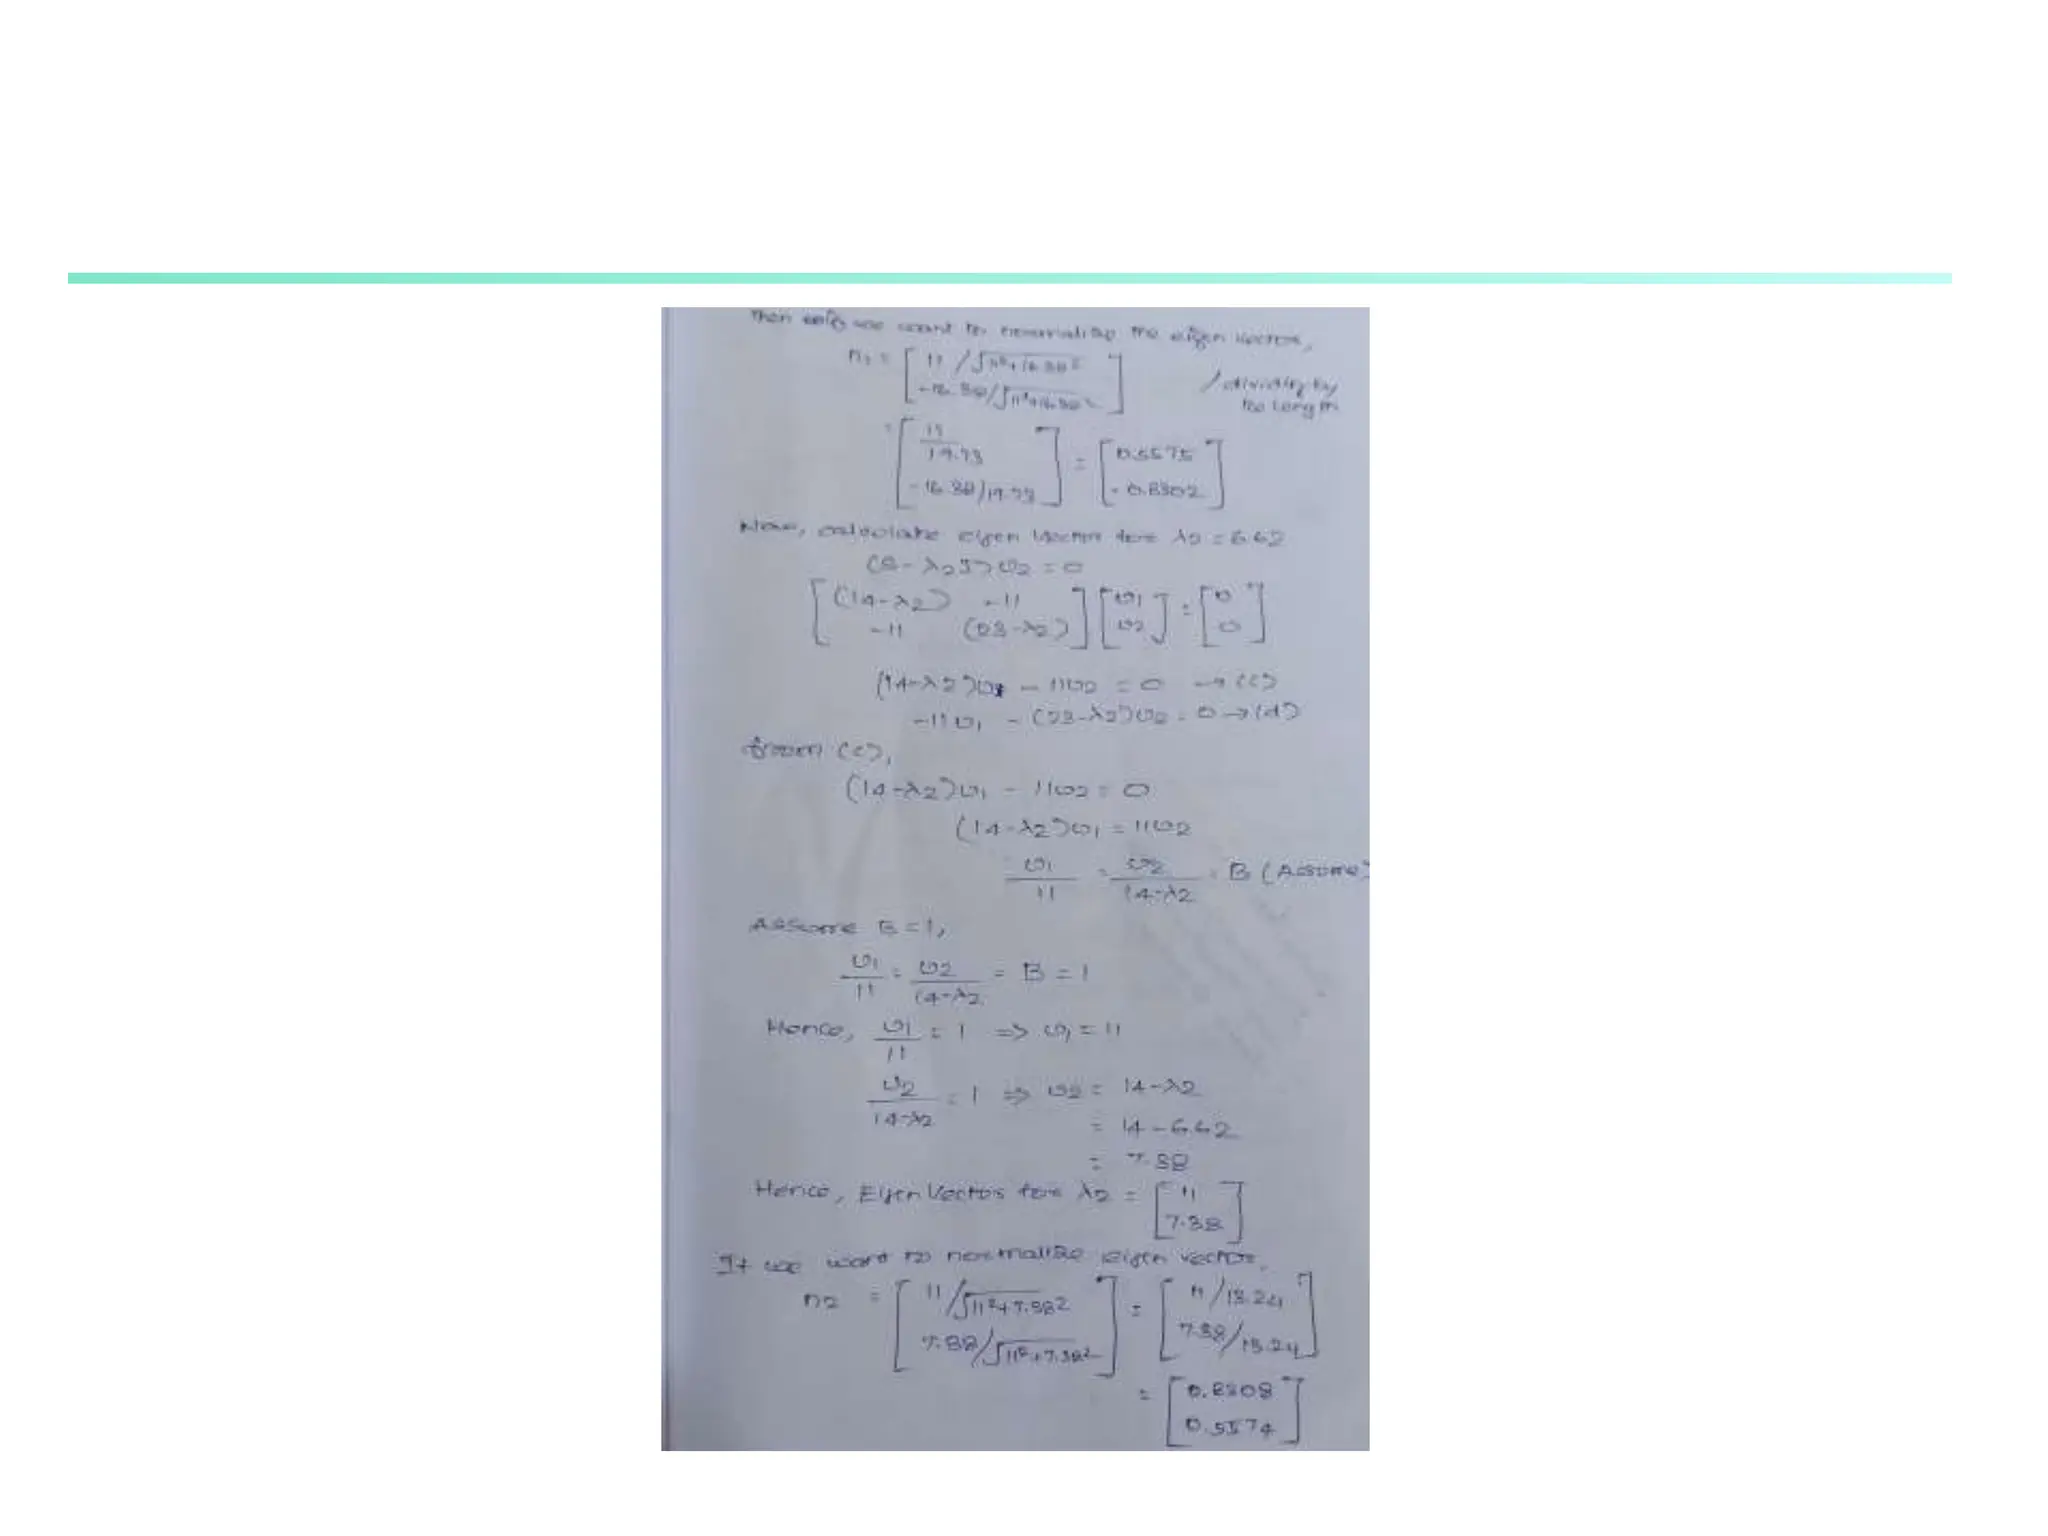 Then we want to normalize the eigen vector,
n1 = [ 11 / √11²+16.38² ] / dividing by
[ -16.38/√11²+16.38² ] the length
= [ 11/19.73 ] = [ 0.5575 ]
[ -16.38/19.73 ] [ -0.8302 ]
Now, calculate eigen vector for λ2 = 6.62
(S - λ2I) U2 = 0
[ (14-λ2) -11 ] [ U1 ] = [ 0 ]
[ -11 (23-λ2) ] [ U2 ] [ 0 ]
(14-λ2)U1 - 11U2 = 0 → (c)
-11U1 - (23-λ2)U2 = 0 → (d)
from (c),
(14-λ2)U1 - 11U2 = 0
(14-λ2)U1 = 11U2
U1/11 = U2/14-λ2 = B (Assume)
Assume B = 1,
U1/11 = U2/14-λ2 = B = 1
Hence, U1/11 = 1 ⇒ U1 = 11
U2/14-λ2 = 1 ⇒ U2 = 14-λ2
= 14 - 6.62
= 7.38
Hence, Eigen Vectors for λ2 = [ 11 ]
[ 7.38 ]
If we want to normalize eigen vector,
n2 = [ 11/√11²+7.38² ] = [ 11/13.24 ]
[ 7.38/√11²+7.38² ] [ 7.38/13.24 ]
= [ 0.8308 ]
[ 0.5574 ]